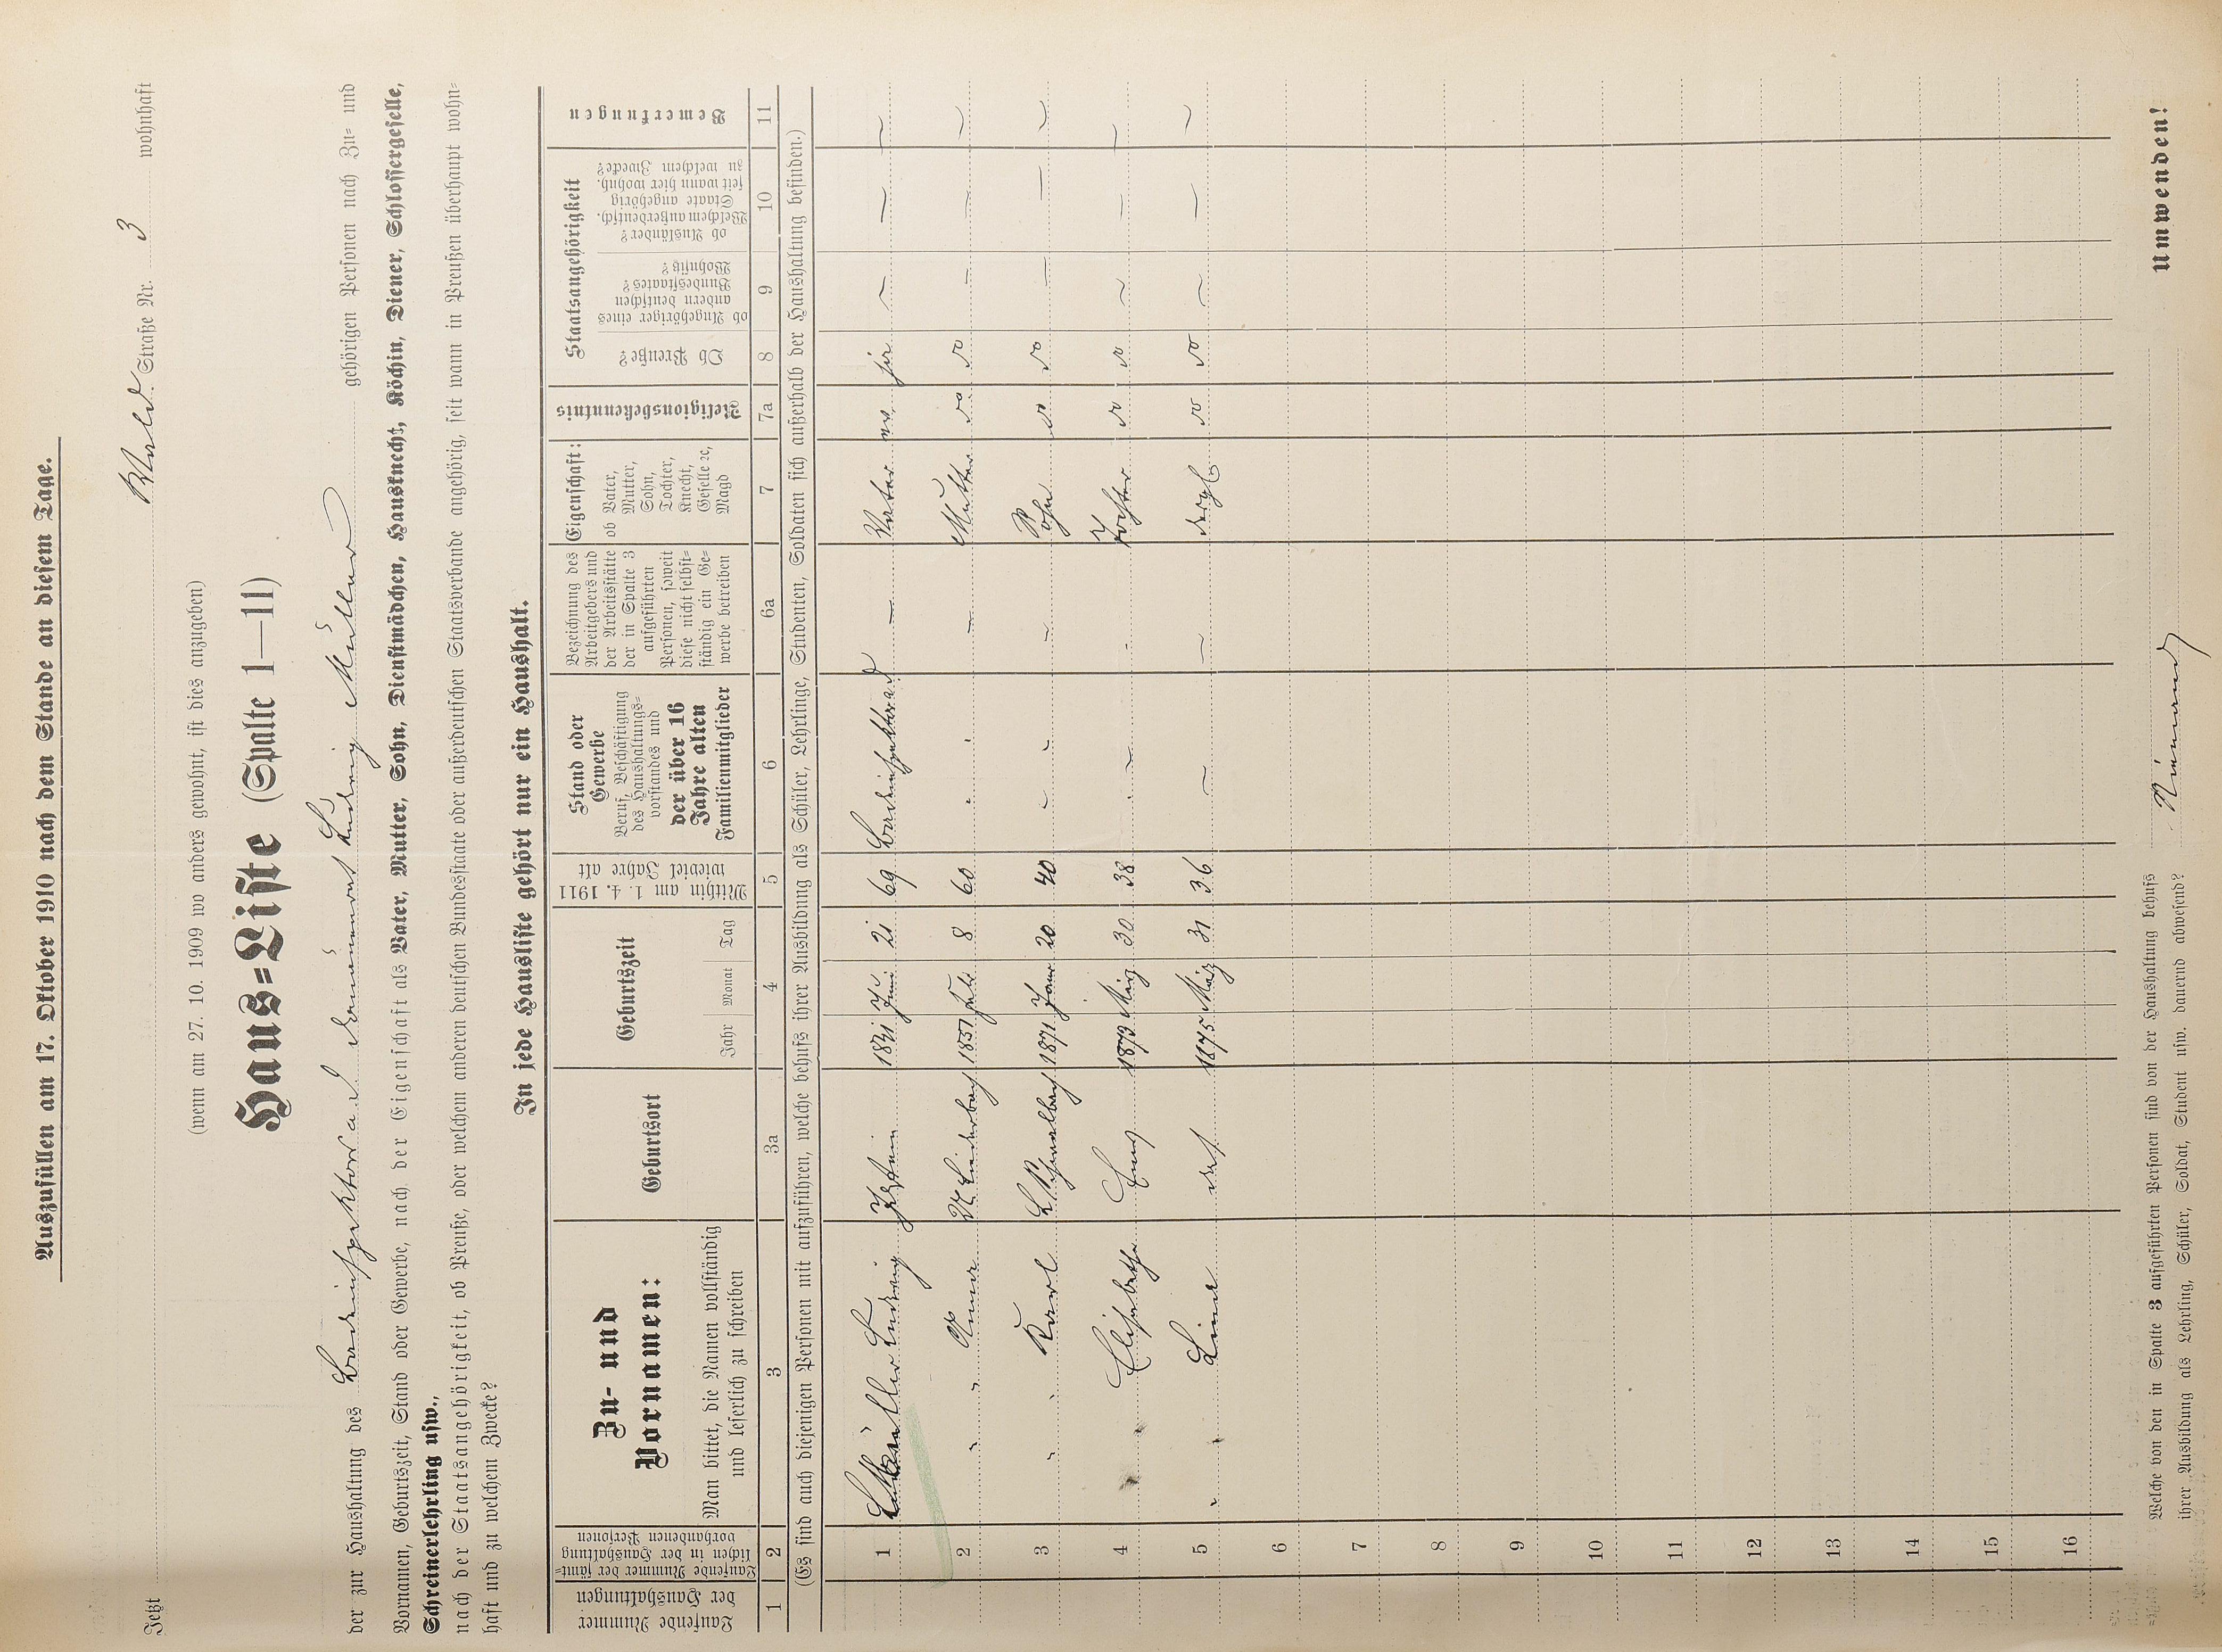 Auszufüllen am 17. Oktober 1910 nach dem Stande an diesem Tage.
Jetzt Wald Straße Nr. 3 wohnhaft
(wenn am 27. 10. 1909 wo anders gewohnt, ist dies anzugeben)
Haus=Liste (Spalte 1—11)
der zur Haushaltung des Ludwig Müller gehörigen Personen nach Zu= und
Vornamen, Geburtszeit, Stand oder Gewerbe, nach der Eigenschaft als Vater, Mutter, Sohn, Dienstmädchen, Hausknecht, Köchin, Diener, Schlossergeselle,
Schreinerlehrling usw.,
nach der Staatsangehörigkeit, ob Preuße, oder welchem anderen deutschen Bundesstaate oder außerdeutschen Staatsverbande angehörig, seit wann in Preußen überhaupt wohn=
haft und zu welchem Zwecke?
In jede Hausliste gehört nur ein Haushalt.
Laufende Nummer
der Haushaltungen
Laufende Nummer der sämt=
lichen in der Haushaltung
vorhandenen Personen
Zu- und
Vornamen:
Man bittet, die Namen vollständig
und leserlich zu schreiben
Geburtsort
Geburtszeit
Jahr Monat Tag
Mithin am 1. 4. 1911
wieviel Jahre alt
Stand oder
Gewerbe
Beruf, Beschäftigung
des Haushaltungs=
vorstandes und
der über 16
Jahre alten
Familienmitglieder
Bezeichnung des
Arbeitgebers und
der Arbeitsstätte
der in Spalte 3
aufgeführten
Personen, soweit
diese nicht selbst=
ständig ein Ge=
werbe betreiben
Eigenschaft:
ob Vater,
Mutter,
Sohn,
Tochter,
Knecht,
Geselle ec,
Magd
Religionsbekenntnis
Staatsangehörigkeit
Ob Preuße?
ob Angehöriger eines
andern deutschen
Bundesstaates?
Wohnsitz?
ob Ausländer?
Welchem außerdeutsch.
Staate angehörig
seit wann hier wohnh.
zu welchem Zwecke?
Bemerkungen
1 2 3 3a 4 5 6 6a 7 7a 8 9 10 11
(Es sind auch diejenigen Personen mit aufzuführen, welche behufs ihrer Ausbildung als Schüler, Lehrlinge, Studenten, Soldaten sich außerhalb der Haushaltung befinden.)
1 Müller Ludwig Idstein 1841 Juni 21 69 Badeinspektor a. d. — Vater ev. — — —
2 " " Anna 1851 8 60 — Mutter do do — — —
3 " " Karl L Schwalbach 1871 Jan 20 40 — Sohn do do — — —
4 Elisabethe Ems 1873 März 30 38 — Tochter do do — — —
5 " Lina das. 1875 März 31 36 — — dergl do do — — —
6
7
8
9
10
11
12
13
14
15
16
Welche von den in Spalte 3 aufgeführten Personen sind von der Haushaltung behufs
ihrer Ausbildung als Lehrling, Schüler, Soldat, Student usw. dauernd abwesend? Niemand
Umwenden!